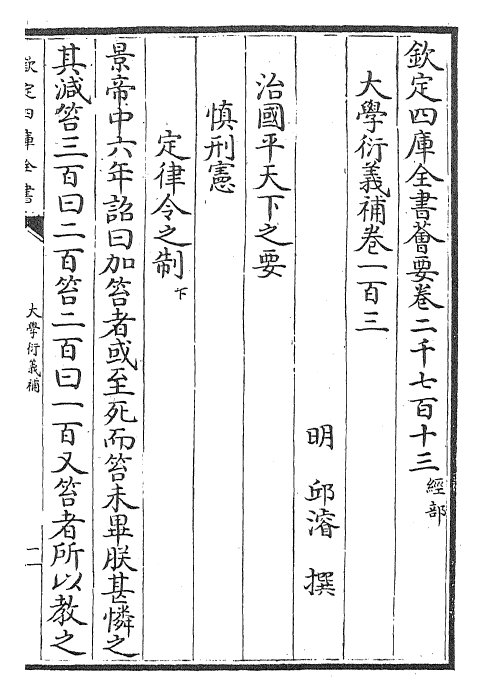 欽定四庫全書薈要卷二千七百十三 經部
大學衍義補卷一百三
明 邱濬 撰
治國平天下之要
慎刑憲
定律令之制 下
景帝中六年詔曰加笞者或至死而笞未畢朕甚憐之
其減笞三百曰二百笞二百曰一百又笞者所以教之
欽定四庫全書
大學衍義補